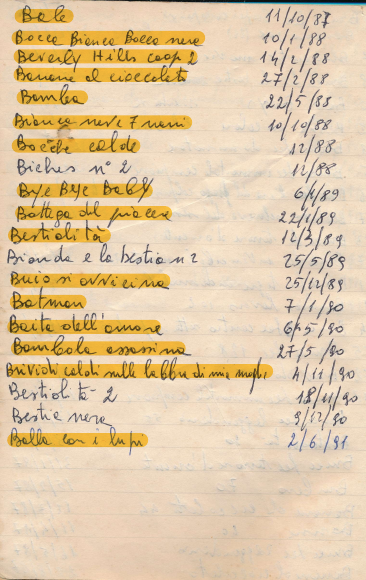 Bale 11/10/87
Bocca Bianca Bocca nera 10/1/88
Beverly Hills coop 2 14/2/88
Banane al cioccolato 27/2/88
Bamba 22/5/88
Bianca neve 7 nani 10/10/88
Bocche calde 12/88
Biches n° 2 12/88
Bye Bye Baby 6/1/89
Bottega del piacere 22/1/89
Bestialità 12/3/89
Bionda e la bestia n 2 25/5/89
Buio si avvicina 25/12/89
Batman 7/1/90
Baita dell'amore 6/5/90
Bambola assassina 27/5/90
Brividi caldi sulle labbra di mia moglie 4/11/90
Bestialità - 2 18/11/90
Bestia nera 9/12/90
Balla con i lupi 2/6/91